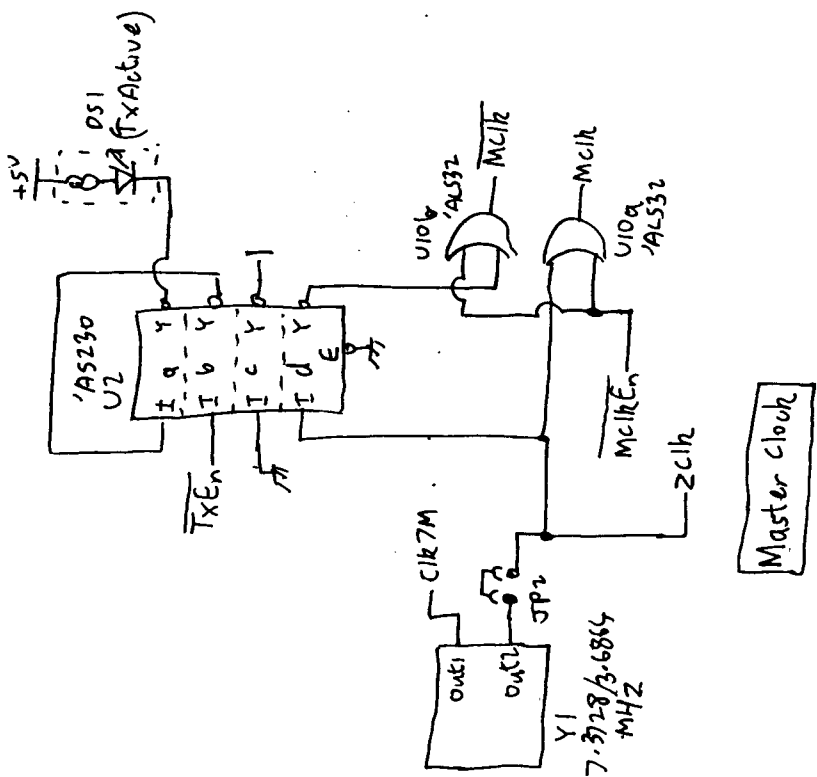 +5V
DS1
(TxActive)
'AS230
U2
I a Y
I b Y
I c Y
I d Y
E
1
TxEn
U10b
'ALS32
MClk
MClk
U10a
'ALS32
MClkEn
Clk7M
ZClk
JP2
Out1
Out2
Y1
7.3728/3.6864
MHZ
Master Clock